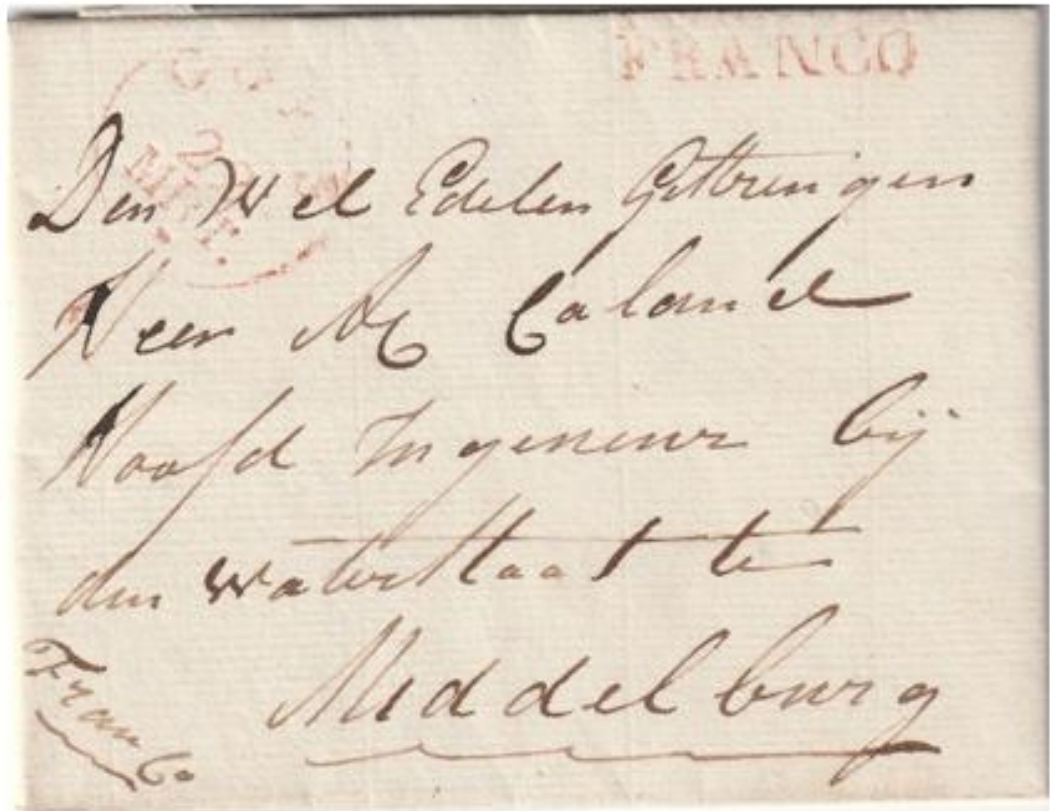 FRANCO
Den Wel Edelen Gestrengen
Heer AC Caland
Hoofd Ingenieur bij
den waterstaat te
Middelburg
Franco